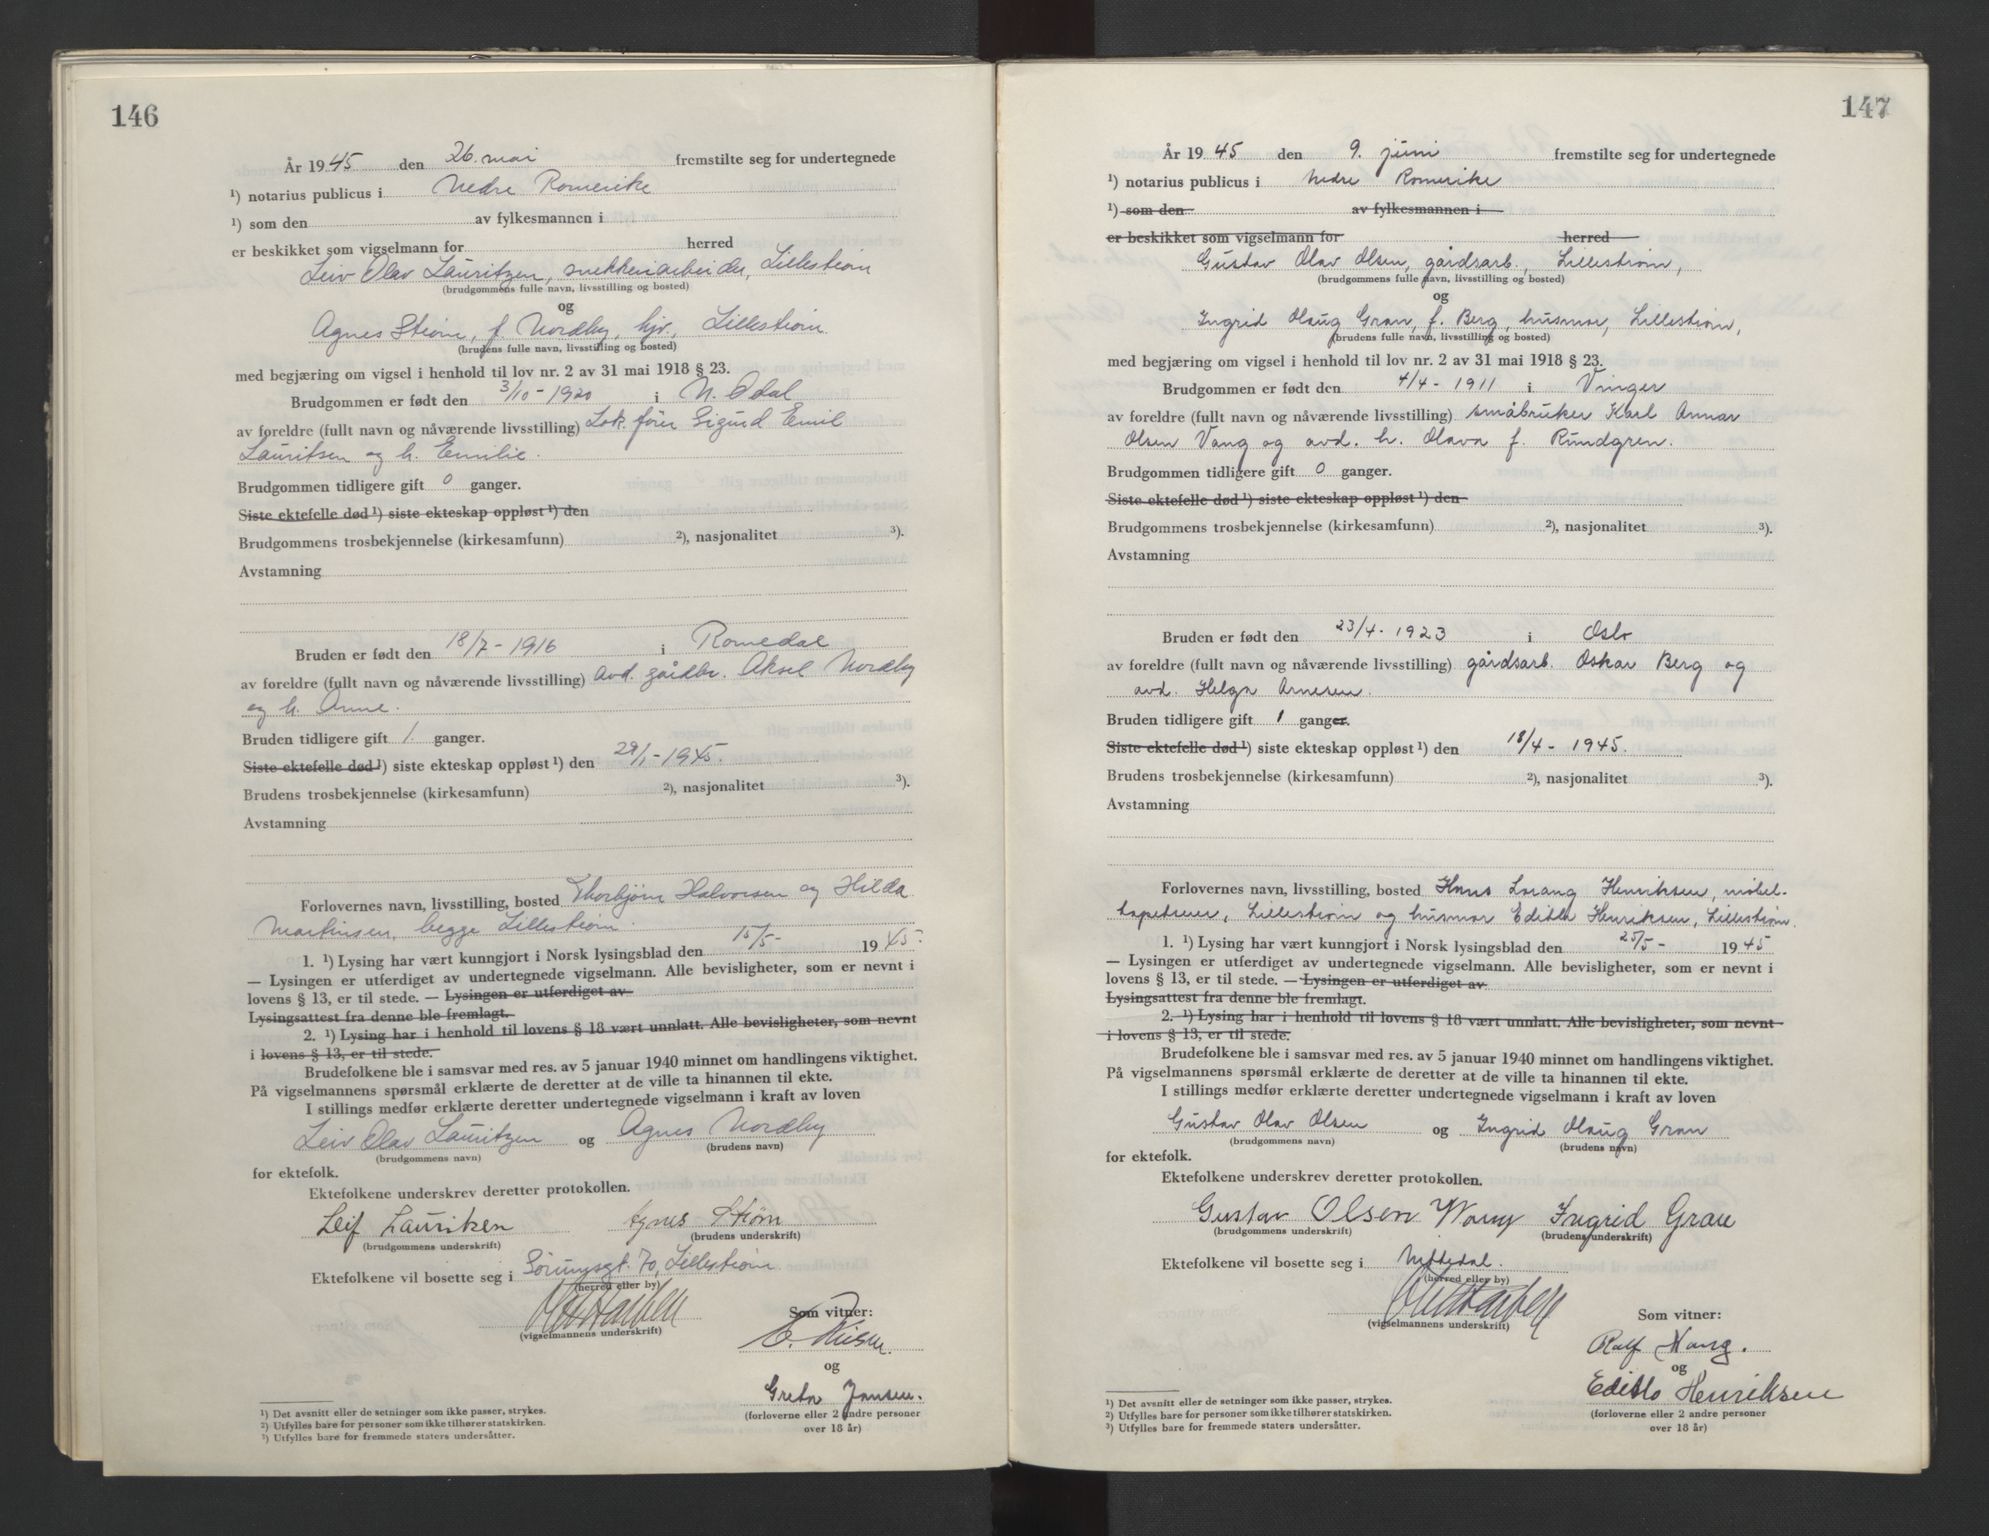 146
År 1945 den 26. mai fremstilte seg for undertegnede
¹) notarius publicus i Nedre Romerike
¹) som den av fylkesmannen i
er beskikket som vigselmann for herred
Leiv Olav Lauritzen, snekkeriarbeider, Lillestrøm
(brudgommens fulle navn, livsstilling og bosted)
og
Agnes Strøm, f. Nordby, hjv., Lillestrøm.
(brudens fulle navn, livsstilling og bosted)
med begjæring om vigsel i henhold til lov nr. 2 av 31 mai 1918 § 23.
Brudgommen er født den 3/10 - 1920 i N. Odal
av foreldre (fullt navn og nåværende livsstilling) Lok. fører Sigurd Emil
Lauritsen og h. Emilie.
Brudgommen tidligere gift 0 ganger.
Siste ektefelle død ¹) siste ekteskap oppløst ¹) den
Brudgommens trosbekjennelse (kirkesamfunn) ²), nasjonalitet ³).
Avstamning
Bruden er født den 18/7 - 1916 i Romedal
av foreldre (fullt navn og nåværende livsstilling) avd. gårdbr. Aksel Nordby
og h. Anne.
Bruden tidligere gift 1. ganger.
Siste ektefelle død ¹) siste ekteskap oppløst ¹) den 29/1 - 1945.
Brudens trosbekjennelse (kirkesamfunn) ²), nasjonalitet ³).
Avstamning
Forlovernes navn, livsstilling, bosted Thorbjørn Halvorsen og Hilda
Martinsen, begge Lillestrøm.
1. ¹) Lysing har vært kunngjort i Norsk lysingsblad den 15/5 - 1945.
— Lysingen er utferdiget av undertegnede vigselmann. Alle bevisligheter, som er nevnt i
lovens § 13, er til stede. — Lysingen er utferdiget av
Lysingsattest fra denne ble fremlagt.
2. ¹) Lysing har i henhold til lovens § 18 vært unnlatt. Alle bevisligheter, som nevnt
i lovens § 13, er til stede.
Brudefolkene ble i samsvar med res. av 5 januar 1940 minnet om handlingens viktighet.
På vigselmannens spørsmål erklærte de deretter at de ville ta hinannen til ekte.
I stillings medfør erklærte deretter undertegnede vigselmann i kraft av loven
Leiv Olav Lauritzen og Agnes Nordby
(brudgommens navn) (brudens navn)
for ektefolk.
Ektefolkene underskrev deretter protokollen.
Leif Lauritzen Agnes Strøm
(brudgommens underskrift) (brudens underskrift)
Ektefolkene vil bosette seg i Sørumsgt. 70, Lillestrøm
(herred eller by)
(vigselmannens underskrift)
Som vitner:
og
Greta Jansen.
(forloverne eller 2 andre personer
over 18 år)
¹) Det avsnitt eller de setninger som ikke passer, strykes.
²) Utfylles bare for personer som ikke tilhører statskirken.
³) Utfylles bare for fremmede staters undersåtter.
147
År 1945 den 9. juni fremstilte seg for undertegnede
¹) notarius publicus i Nedre Romerike
¹) som den av fylkesmannen i
er beskikket som vigselmann for herred
Gustav Olav Olsen, gårdsarb., Lillestrøm,
(brudgommens fulle navn, livsstilling og bosted)
og
Ingrid Olaug Gran, f. Berg, husmor, Lillestrøm,
(brudens fulle navn, livsstilling og bosted)
med begjæring om vigsel i henhold til lov nr. 2 av 31 mai 1918 § 23.
Brudgommen er født den 4/4 - 1911 i Vinger
av foreldre (fullt navn og nåværende livsstilling) småbruker Karl Annar
Olsen Vang og avd. h. Olava f. Rundgren.
Brudgommen tidligere gift 0 ganger.
Siste ektefelle død ¹) siste ekteskap oppløst ¹) den
Brudgommens trosbekjennelse (kirkesamfunn) ²), nasjonalitet ³).
Avstamning
Bruden er født den 23/4 - 1923 i Oslo
av foreldre (fullt navn og nåværende livsstilling) gårdsarb. Oskar Berg og
avd. Helga Arnesen.
Bruden tidligere gift 1 ganger.
Siste ektefelle død ¹) siste ekteskap oppløst ¹) den 18/4 - 1945.
Brudens trosbekjennelse (kirkesamfunn) ²), nasjonalitet ³).
Avstamning
Forlovernes navn, livsstilling, bosted Hans Lorang Henriksen, møbel-
tapetserer, Lillestrøm og husmor Edith Henriksen, Lillestrøm.
1. ¹) Lysing har vært kunngjort i Norsk lysingsblad den 25/5 - 1945
— Lysingen er utferdiget av undertegnede vigselmann. Alle bevisligheter, som er nevnt i
lovens § 13, er til stede. — Lysingen er utferdiget av
Lysingsattest fra denne ble fremlagt.
2. ¹) Lysing har i henhold til lovens § 18 vært unnlatt. Alle bevisligheter, som nevnt
i lovens § 13, er til stede.
Brudefolkene ble i samsvar med res. av 5 januar 1940 minnet om handlingens viktighet.
På vigselmannens spørsmål erklærte de deretter at de ville ta hinannen til ekte.
I stillings medfør erklærte deretter undertegnede vigselmann i kraft av loven
Gustav Olav Olsen og Ingrid Olaug Gran
(brudgommens navn) (brudens navn)
for ektefolk.
Ektefolkene underskrev deretter protokollen.
Gustav Olsen Wang Ingrid Gran
(brudgommens underskrift) (brudens underskrift)
Ektefolkene vil bosette seg i Nittedal.
(herred eller by)
(vigselmannens underskrift)
Som vitner:
Rolf Haug.
og
Edith Henriksen
(forloverne eller 2 andre personer
over 18 år)
¹) Det avsnitt eller de setninger som ikke passer, strykes.
²) Utfylles bare for personer som ikke tilhører statskirken.
³) Utfylles bare for fremmede staters undersåtter.